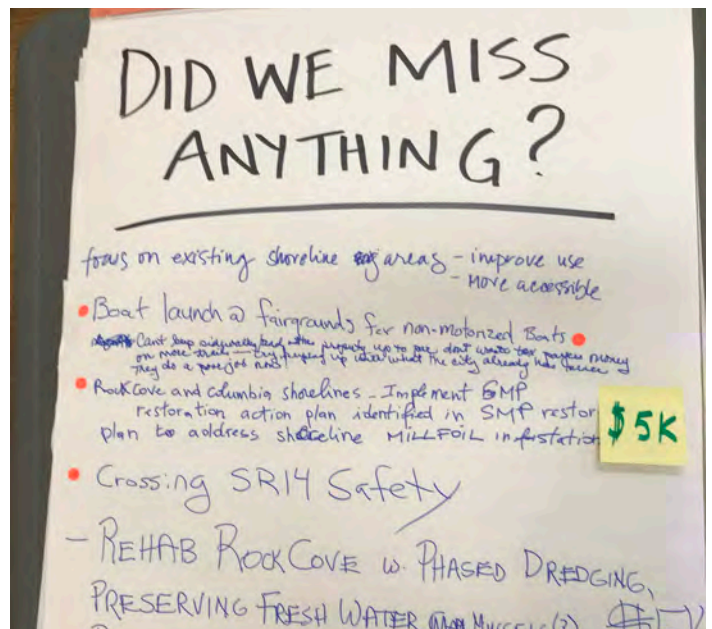 DID WE MISS
ANYTHING?
focus on existing shoreline areas - improve use
- More accessible
Boat launch @ fairgrounds for non-motorized Boats
Can't keep property up to par don't waste tax payers money
on more trails — try keeping up what the city already has
They do a poor job now
Rock Cove and Columbia shorelines - Implement SMP
restoration action plan identified in SMP restor
plan to address shoreline MILLFOIL infestation
$5K
Crossing SR14 Safety
- REHAB ROCK COVE w. PHASED DREDGING,
PRESERVING FRESH WATER MUSSELS (?)